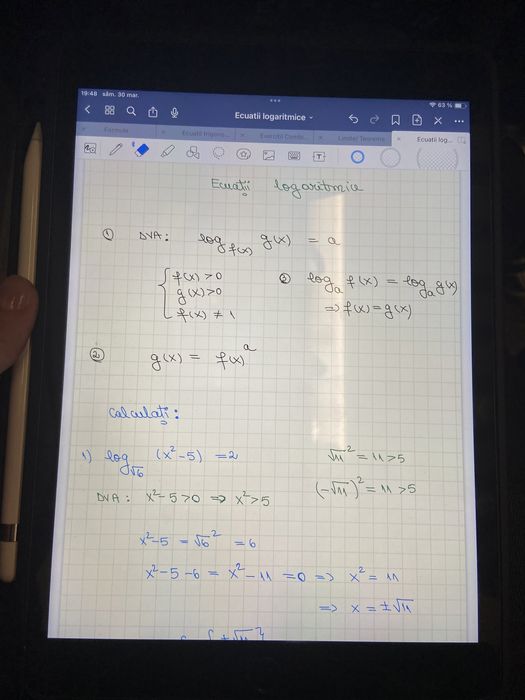 19:48 sâm. 30 mar.
63 %
Ecuatii logaritmice
Formule
Ecuatii trigono...
Exercitii Combi...
Limite/ Teoreme
Ecuatii log...
Ecuații logaritmice
① DVA: log_{f(x)} g(x) = a
{ f(x) > 0
g(x) > 0
f(x) ≠ 1
③ log_a f(x) = log_a g(x)
⇒ f(x) = g(x)
② g(x) = f(x)^a
Calculați:
1) log_{√6} (x²-5) = 2
√11² = 11 > 5
DVA: x²-5>0 ⇒ x²>5
(-√11)² = 11 > 5
x²-5 = √6² = 6
x²-5-6 = x²-11 = 0 ⇒ x² = 11
⇒ x = ±√11